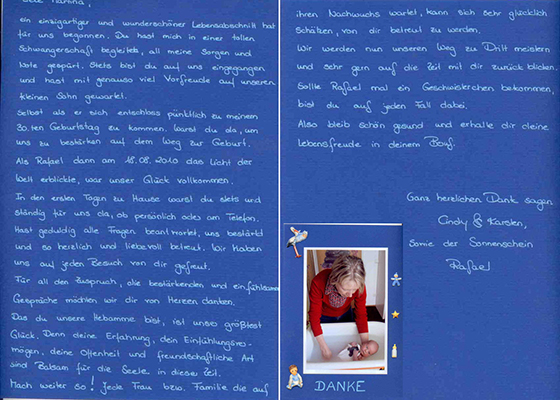 ein einzigartiger und wunderschöner Lebensabschnitt hat
für uns begonnen. Du hast mich in einer tollen
Schwangerschaft begleitet, all meine Sorgen und
Nöte gespürt. Stets bist du auf uns eingegangen
und hast mit genauso viel Vorfreude auf unseren
kleinen Sohn gewartet.
Selbst als er sich entschloss pünktlich zu meinem
30.ten Geburtstag zu kommen, warst du da, um
uns zu bestärken auf dem Weg zur Geburt.
Als Rafael dann am 18.08.2010 das Licht der
Welt erblickte, war unser Glück vollkommen.
In den ersten Tagen zu Hause warst du stets und
ständig für uns da, ob persönlich oder am Telefon.
Hast geduldig alle Fragen beantwortet, uns bestärkt
und so herzlich und liebevoll betreut. Wir haben
uns auf jeden Besuch von dir gefreut.
Für all den Zuspruch, die bestärkenden und einfühlsamen
Gespräche möchten wir dir von Herzen danken.
Das du unsere Hebamme bist, ist unser größtest
Glück. Denn deine Erfahrung, dein Einfühlungsver-
mögen, deine Offenheit und freundschaftliche Art
sind Balsam für die Seele in dieser Zeit.
Mach weiter so! Jede Frau bzw. Familie die auf
ihren Nachwuchs wartet, kann sich sehr glücklich
schätzen, von dir betreut zu werden.
Wir werden nun unseren Weg zu Dritt meistern
und sehr gern auf die Zeit mit dir zurück blicken.
Sollte Rafael mal ein Geschwisterchen bekommen,
bist du auf jeden Fall dabei.
Also bleib schön gesund und erhalte dir deine
Lebensfreude in deinem Beruf.
Ganz herzlichen Dank sagen
Cindy & Karsten,
sowie der Sonnenschein
Rafael
DANKE